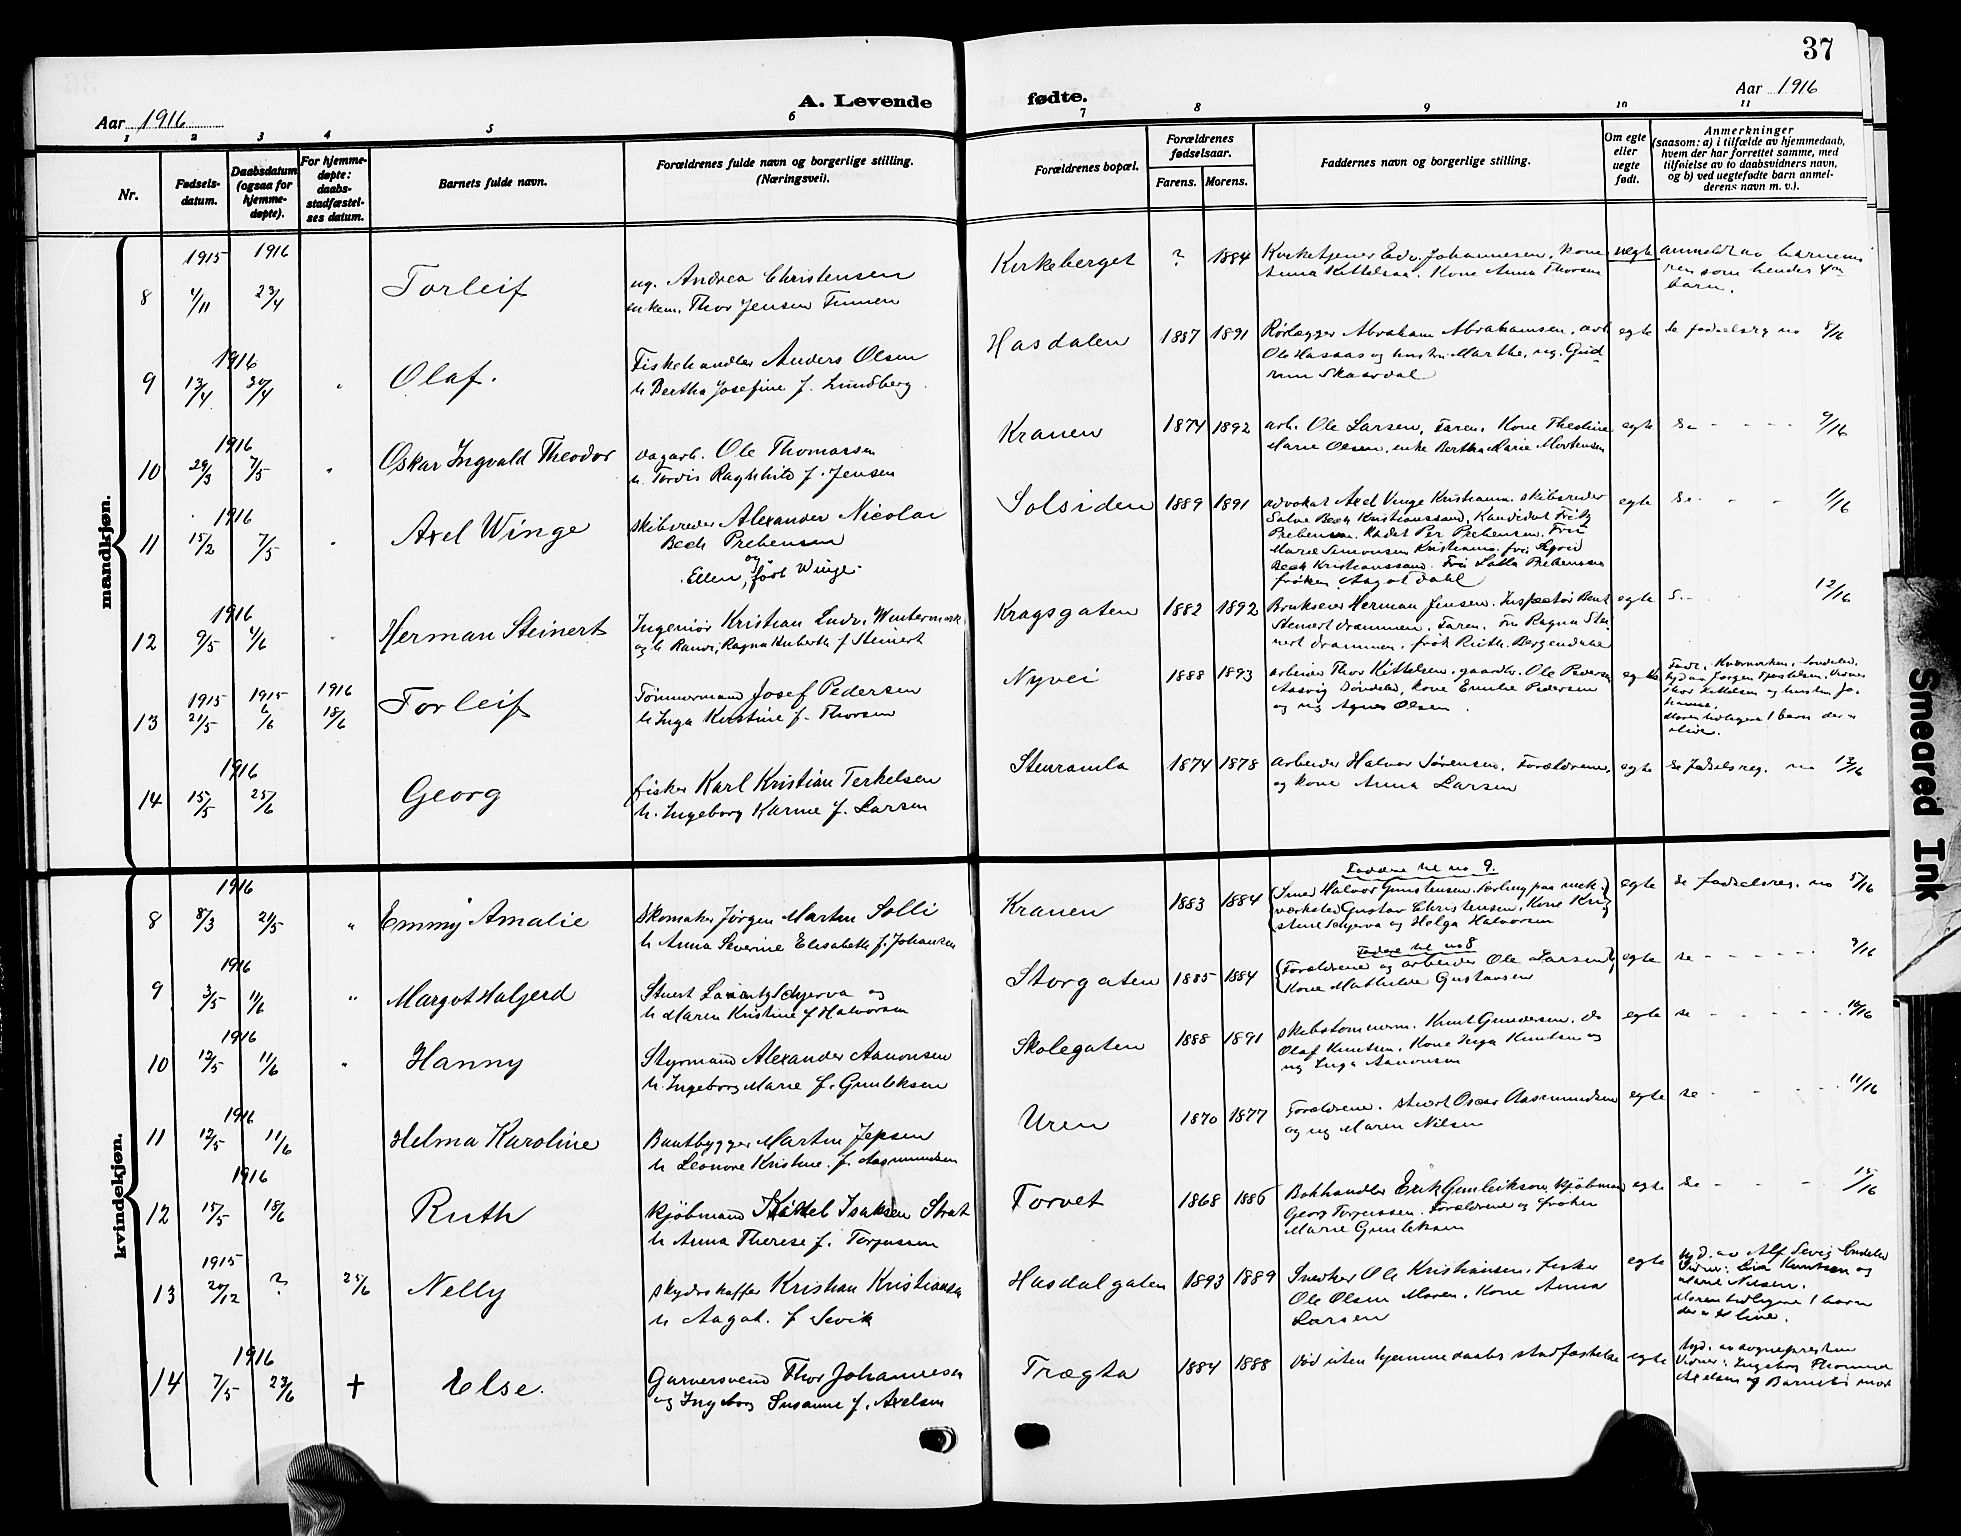 37
Aar 1916
A. Levende
fødte.
Aar 1916
1 2 3 4 5 6 7 8 9 10 11
Nr.
Fødsels-
datum.
Daabsdatum
(ogsaa for
hjemme-
døpte).
For hjemme-
døpte:
daabs-
stadfæstel-
ses datum.
Barnets fulde navn.
Forældrenes fulde navn og borgerlige stilling.
(Næringsvei).
Forældrenes bopæl.
Forældrenes
fødselsaar.
Farens. Morens.
Faddernes navn og borgerlige stilling.
Om egte
eller
uegte
født.
Anmerkninger
(saasom: a) i tilfælde av hjemmedaab,
hvem der har forrettet samme, med
tilføielse av to daabsvidners navn,
og b) ved uegtefødte barn anmel-
derens navn m. v.).
mandkjøn.
1915 1916
8 4/11 23/4 Torleif
ug. Andrea Christensen
enkem. Thor Jensen Tinnen
Kirkeberget ? 1884
Kirketjener Edv. Johannesen, kone
Anna Kittelsen. Kone Anna Thorsen
uegte
anmeldt av barnemo
ren som hendes 4de
barn.
1916
9 13/4 30/4 " Olaf.
Fiskehandler Anders Olsen
h. Bertha Josefine f. Lundberg.
Hasdalen 1887 1891
Rørlægger Abraham Abrahamsen, arb.
Ole Hasaas og hustru Marthe, ug. Gud-
run Skaardal
egte
se fødselsreg no 8/16
1916
10 29/3 7/5 " Oskar Ingvald Theodor
dagarb. Ole Thomassen
h. Tordis Raghhild f. Jensen
Kranen 1874 1892
arb. Ole Larsen, Faren, Kone Theoline
Marie Olsen, enke Bertha Marie Mortensen
egte se - - - - 9/16
1916
11 15/2 7/5 " Axel Winge
skibsreder Alexander Nicolai
Bech Prebensen
og
Ellen, født Winge.
Solsiden 1889 1891
advokat Axel Vinge Kristiania. skibsreder
Salve Bech Kristianssand, Kandidat Fritz
Prebensen. Kadet Per Prebensen. Fru
Marie Simonsen Kristiania. fru Sigrid
Bech Kristianssand. Fru Lalla Prebensen
frøken Aagot Dahl
egte se - - - 1/16
1916
12 9/5 4/6 " Herman Steinert
Ingeniør Kristian Ludv. Wintermark
og h. Randi, Ragna Huberth f. Steinert
Kragsgaten 1882 1892
Brukseier Herman Jensen. Inspektør Bent
Steinert Drammen. Faren. Fru Ragna Stei
nert Drammen. frøk Ruth Bergendahl
egte s. - - 12/16
1915 1915 1916
13 21/5 6/6 18/6 Torleif
Tømmermand Josef Pedersen
h. Inga Kristine f. Thorsen
Nyvei 1888 1893
arbeider Thor Kittelsen. gaardbr. Ole Pedersen
Aasvig Søndeled, kone Emilie Pedersen
og ug Agnes Olsen.
egte
1916
14 15/5 25/6 Georg
fisker Karl Kristian Terkelsen
h. Ingeborg Karine f. Larsen
Stenramla 1874 1878
arbeider Halvor Sørensen. Forældrene,
og kone Anna Larsen
egte se fødselsreg. no 13/16
kvindekjøn.
1916
8 8/3 21/5 " Emmy Amalie
Skomaker Jørgen Martin Solli
h. Anna Severine Elisabeth f. Johansen
Kranen 1883 1884
Faddere til no 9.
Smed Halvor Gunstensen. Lærling paa mek.
værksted Gustav Christensen, Kone Kri
stine Schjerva og Helga Halvorsen
egte se fødselsreg. no 5/16
1916
9 3/5 11/6 " Margot Halgjerd
Stuert Laurantz Schjerva og
h. Maren Kristine f Halvorsen
Storgaten 1885 1884
Faddere til no 8
Forældrene og arbeider Ole Larsen
Kone Mathilde Gustavsen
egte se - - - - 9/16
1916
10 12/5 11/6 " Hanny
Styrmand Alexander Aanonsen
h. Ingeborg Marie f. Gunleksen
Skolegaten 1888 1891
skibstømmerm. Knut Gundersen. do
Olaf Knutsen. Kone Inga Knutsen og
ug Inga Aanonsen
egte se - - - - 10/16
1916
11 12/5 11/6 Helma Karoline
Baatbygger Martin Jepsen
h. Leonore Kristine. f. Aasmundsen
Uren 1870 1877
Forældrene. stuert Oscar Aasmundsen
og ug Maren Nilsen
egte se - - - - 11/16
1916
12 15/5 18/6 Ruth
Kjøbmand Kittel Isaksen Strat
h. Anna Therese f. Torjussen
Torvet 1868 1886
Bokhandler Erik Gunleiksen, kjøbman
Georg Torjussen. Forældrene og frøken
Marie Gunleksen
egte se - - - 15/16
1915
13 20/12 ? 25/6 Nelly
skydsskaffer Kristian Kristiansen
h. Aagot. f Sevik
Hasdalgaten 1893 1889
Snedker Ole Kristiansen. fisker
Ole Olsen Moren. Kone Anna
Larsen
egte
Marie Nilsen.
Moren tidligere 1 barn
1916
14 7/5 23/6 + Else.
Garversvend Thor Johannesen
og Ingeborg Susanne f. Axelsen
Trægta 1884 1888
Død uten hjemmedaabs stadfæstelse
egte
hjd. av sognepresten
Vidner: Ingeborg Thommes
Axelsen og Barnets mor
Smeared Ink